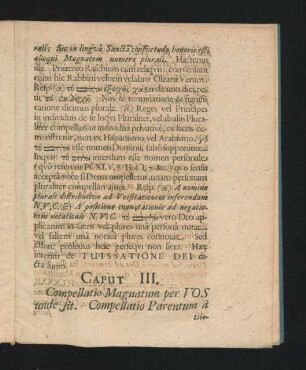 ralis: Sic in linguâ Sanctâ consvetudo honoris est,
alloqui Magnatem numero plurali. Hactenus
ille. Prætereo Raschium cum reliqvis: conveniunt
enim hîc Rabbini velut in velabro Olearii. Verum
Resp. (α) το אלהים ἐξοχῆς χάριν de uno dici, pe-
titur το ἐν ἀρχῇ. Non de terminatione sed signifi-
catione dicimus plurale. (β) Reges vel Principes
in individuis de se loqvi Pluraliter, vel ab aliis Plura-
liter compellari ut individua privativè, ex sacris de-
monstretur, non ex Hispanismo vel Arabismo. (γ)
אלהים esse nomen Domini, falsò supponitur.
Inqvis: το אלהים interdum esse nomen personale
(quò referent Ps. XLV, 8. Hos. I, 7. &c.) quo sensu
acceptâ voce si Deus compelletur, unam personam
pluraliter compellari ajunt. Resp. (α) A nomine
plurali distributivo ad Vossitationem inferendam
N.V.C. (β) A positione connotationis ad negatio-
nem notationis N.V.C. το אלהים vero Deo ap-
plicatum in sacris vel plures unâ personâ notat,
vel saltem unâ notatâ plures connotat. Sed
prolixius heic perseqvi non licet. Hæc
interim de TUISSATIONE DEI
dicta sunto.
CAPUT III.
Compellatio Magnatum per VOS
unde sit. Compellatio Parentum à
Libe-